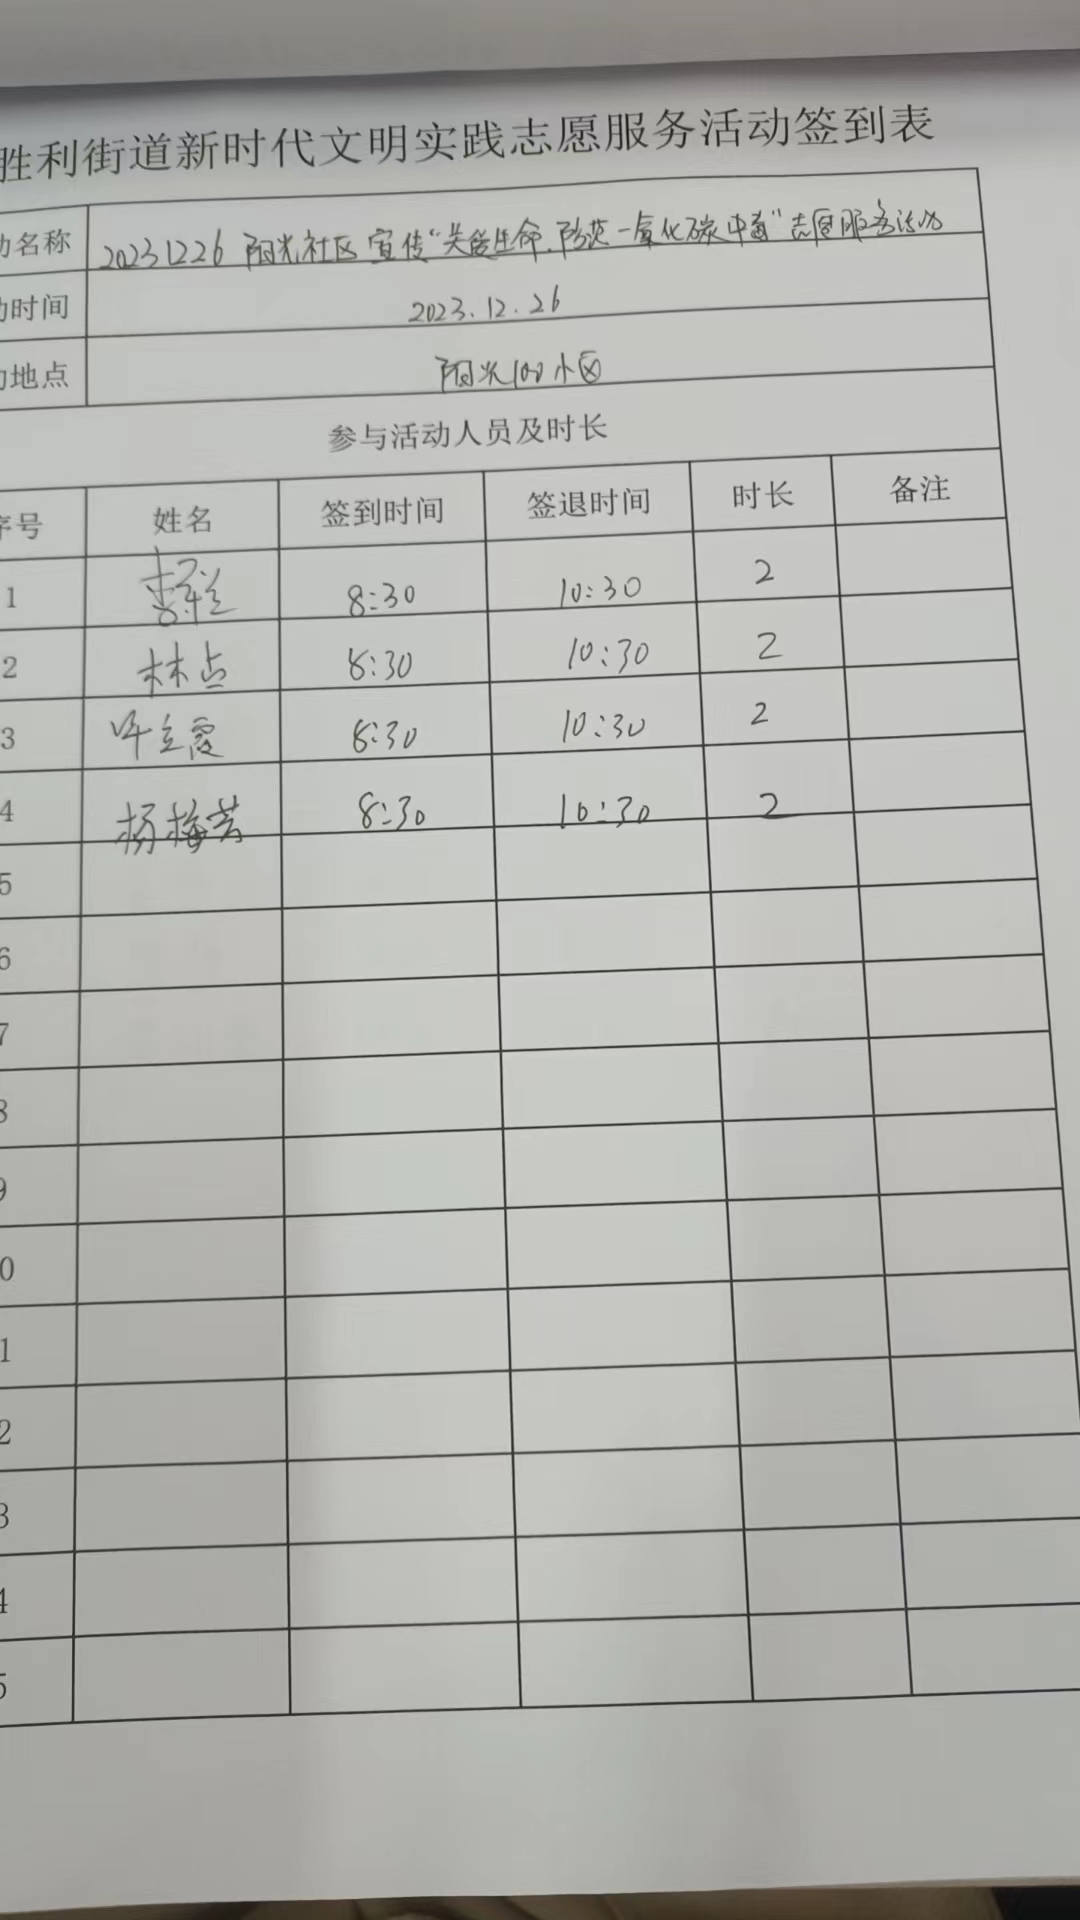 胜利街道新时代文明实践志愿服务活动签到表
动名称 20231226 阳光社区 宣传"关爱生命、防范一氧化碳中毒"志愿服务活动
动时间 2023.12.26
动地点 阳光100小区
参与活动人员及时长
序号 姓名 签到时间 签退时间 时长 备注
1 8:30 10:30 2
2 林点 8:30 10:30 2
3 8:30 10:30 2
4 杨梅芳 8:30 10:30 2
5
6
7
8
9
0
1
2
3
4
5